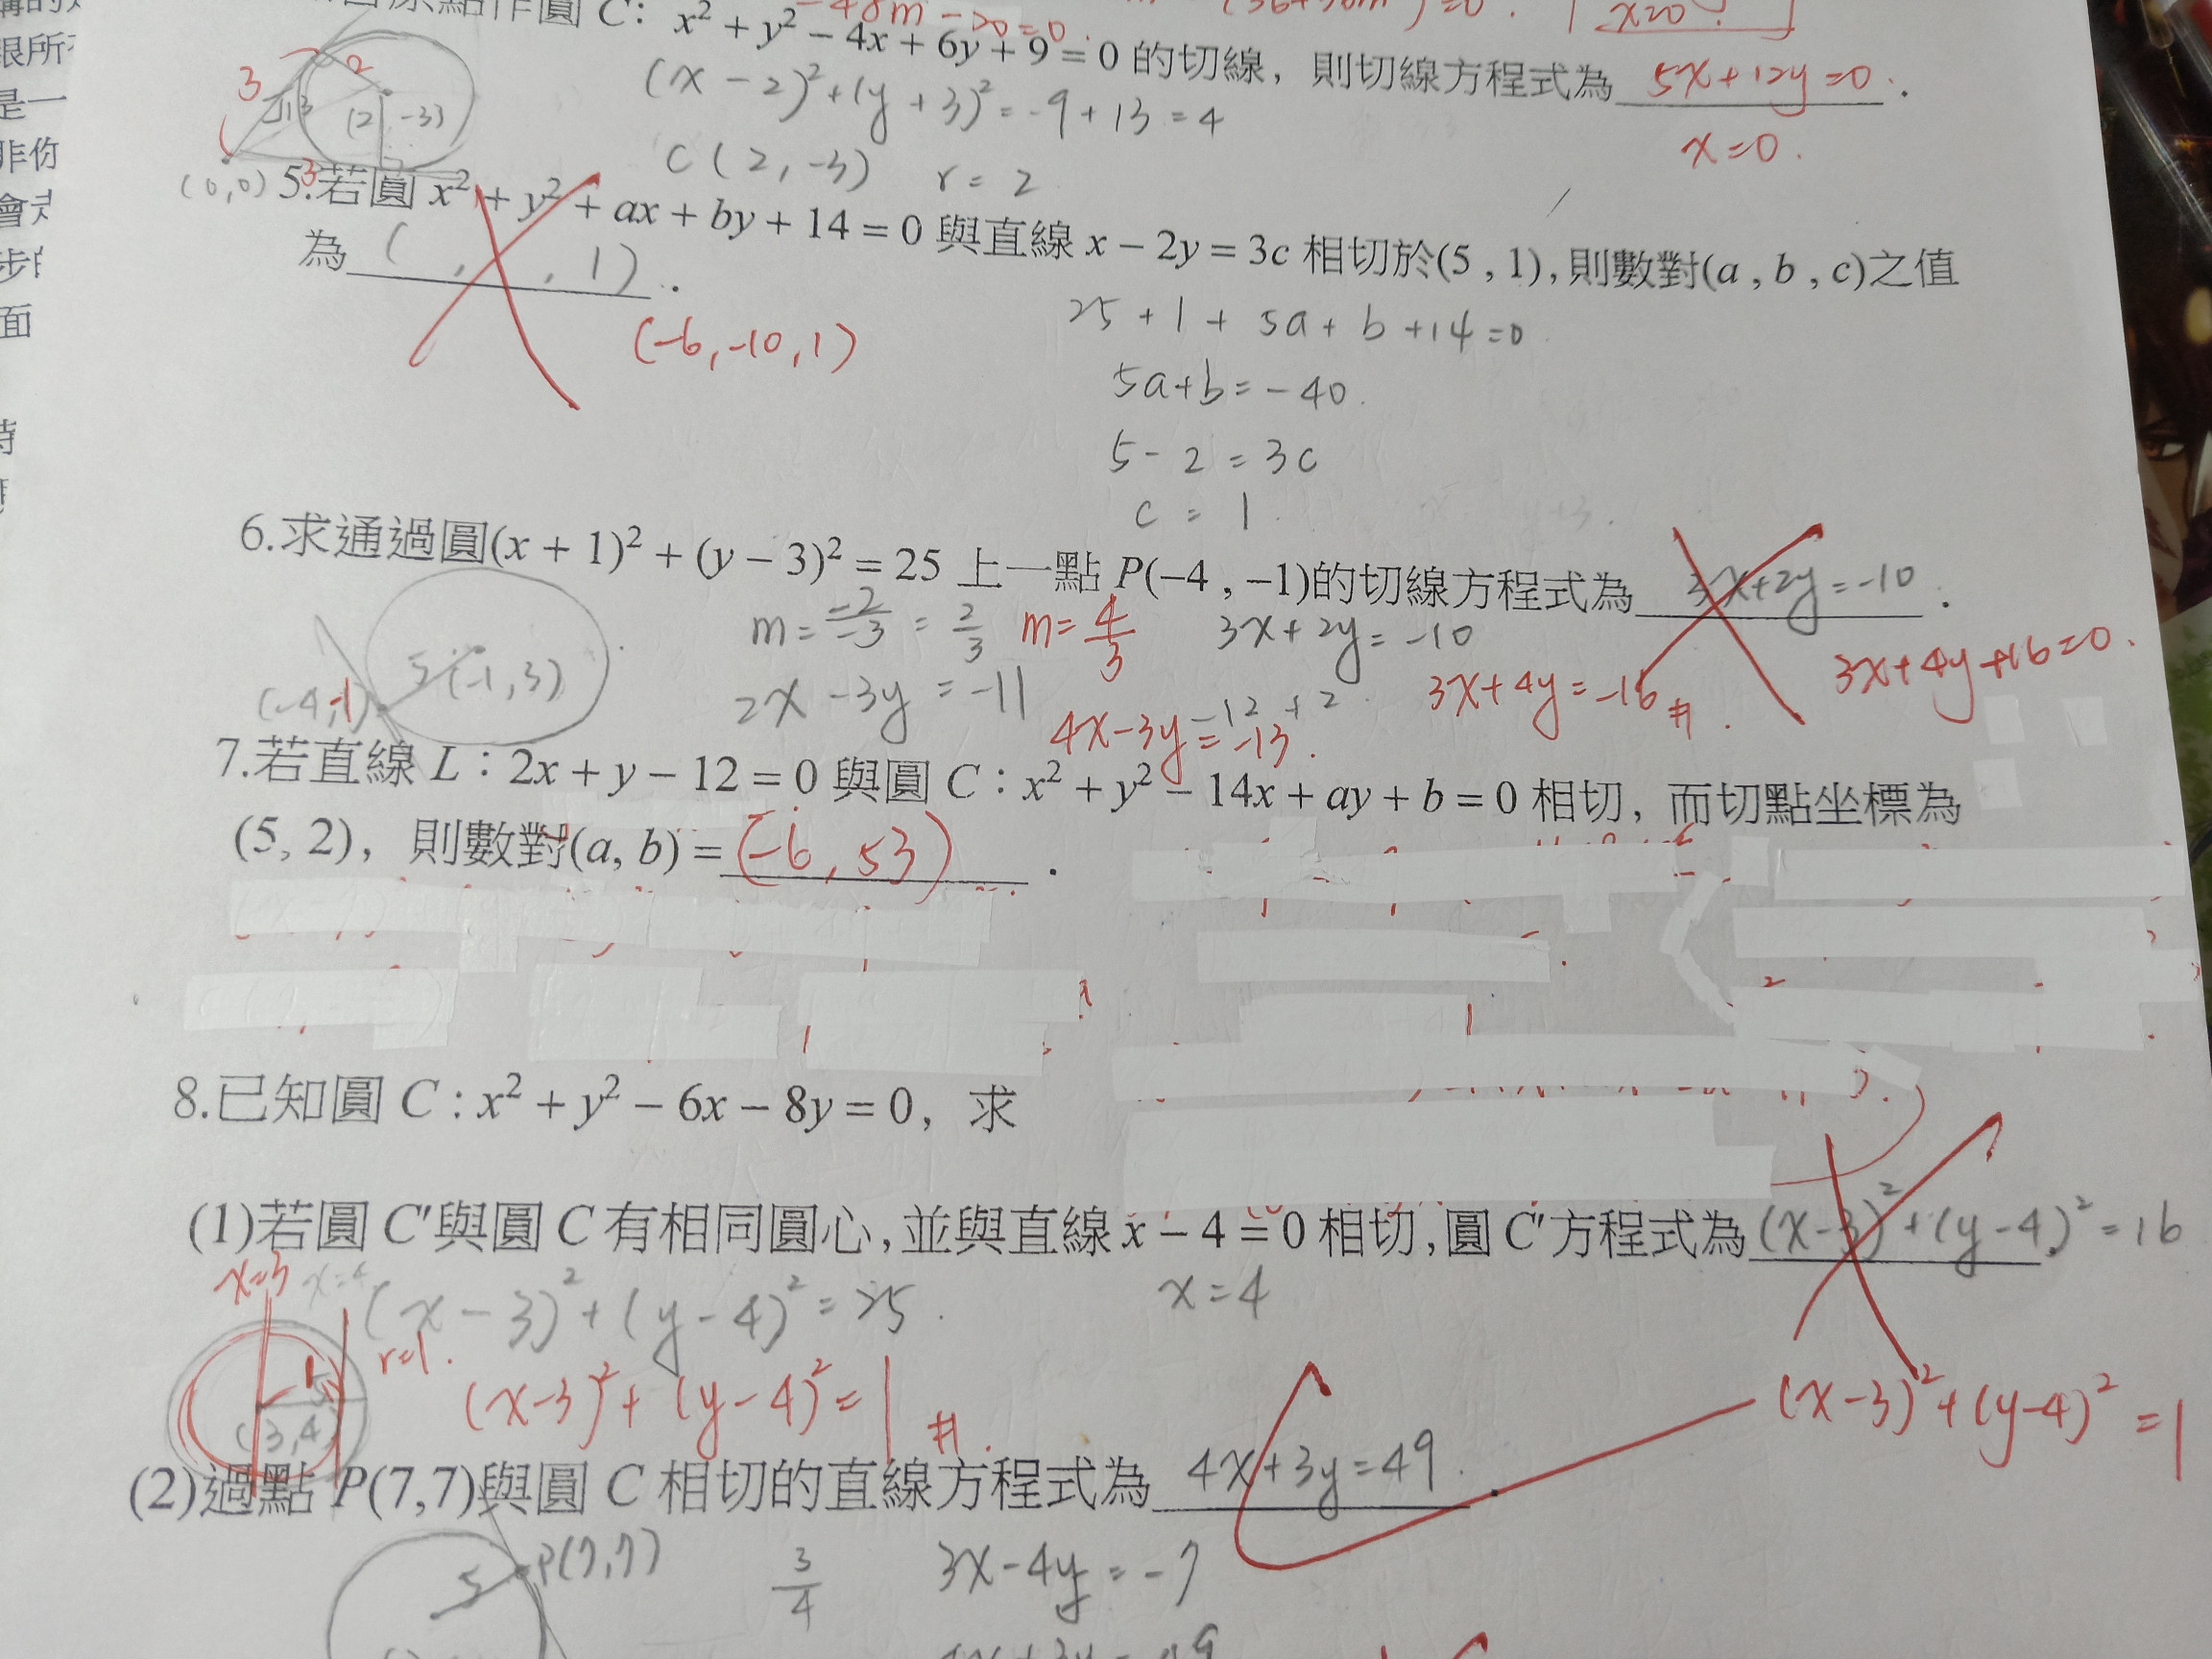 圓 C：x² + y² − 4x + 6y + 9 = 0 的切線，則切線方程式為 5x+12y=0.
x=0.
(x−2)²+(y+3)²=-9+13=4
C(2,-3) r=2
3 2 √13 (2,-3) 3
(0,0)
5.若圓 x² + y² + ax + by + 14 = 0 與直線 x − 2y = 3c 相切於(5 , 1), 則數對(a , b , c)之值
為 ( , , 1) .
(-6,-10,1)
25+1+5a+b+14=0
5a+b=-40.
5-2=3c
c=1
6.求通過圓(x + 1)² + (y − 3)² = 25 上一點 P(−4 , −1)的切線方程式為 3x+2y=-10 .
m=-2/-3=2/3 m=4/3 3x+2y=-10
3x+4y+16=0.
5 (-1,3)
(-4,-1)
2x-3y=-11
-12+2
4x-3y=-13.
3x+4y=-16 #.
7.若直線 L：2x + y − 12 = 0 與圓 C：x² + y² − 14x + ay + b = 0 相切，而切點坐標為
(5, 2)，則數對(a, b) = (-6,53) .
8.已知圓 C : x² + y² − 6x − 8y = 0，求
(1)若圓 C′與圓 C 有相同圓心,並與直線 x − 4 = 0 相切,圓 C′方程式為 (x-3)²+(y-4)²=16
x=3 x=4 (x-3)²+(y-4)²=25. x=4
r=1.
1 5 (3,4)
(x-3)²+(y-4)²=1 #.
(x-3)²+(y-4)²=1
(2)過點 P(7,7)與圓 C 相切的直線方程式為 4x+3y=49. .
5 P(7,7) 3/4 3x-4y=-7